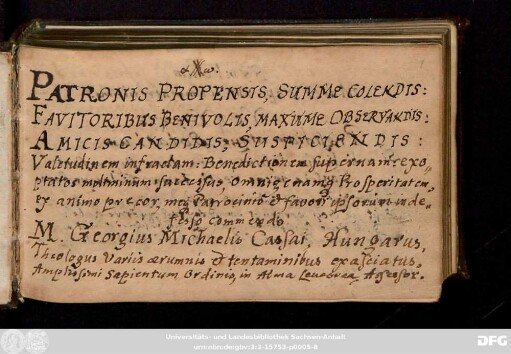 α ⳩ ω.
PATRONIS PROPENSIS, SUMME COLENDIS:
FAVITORIBUS BENIVOLIS, MAXUME OBSERVANDIS:
AMICIS CANDIDIS, SUSPICIENDIS:
Valetudinem infractam: Benedictionem supernam: exo,,
ptatos successus, omnigenamq Prosperitatem,
ex animo precor, meq Patrocinio & favori ipsorum inde,,
fesso commendo
M. Georgius Michaelis Cassai, Hungarus,
Theologus Variis ærumnis & tentaminibus exasciatus,
Amplissimi Sapientum Ordinis, in Alma Leucorea Assessor.
Universitäts- und Landesbibliothek Sachsen-Anhalt
urn:nbn:de:gbv:3:3-15753-p0005-6
DFG